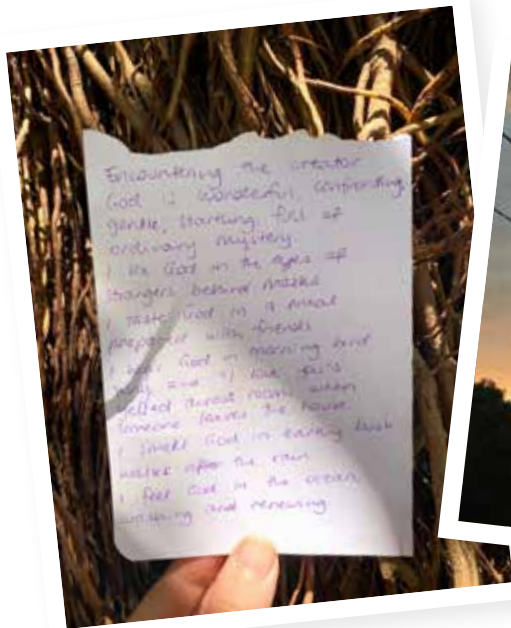 Encountering the creator
God is wonderful, confronting,
gentle, startling, full of
ordinary mystery.
I see God in the eyes of
strangers behind masks
I taste God in a meal
prepared with friends
I hear God in morning bird
and "I love you's
yelled across rooms when
someone leaves the house.
I smell God in early bush
walks after the rain
I feel God in the ocean,
washing and renewing.